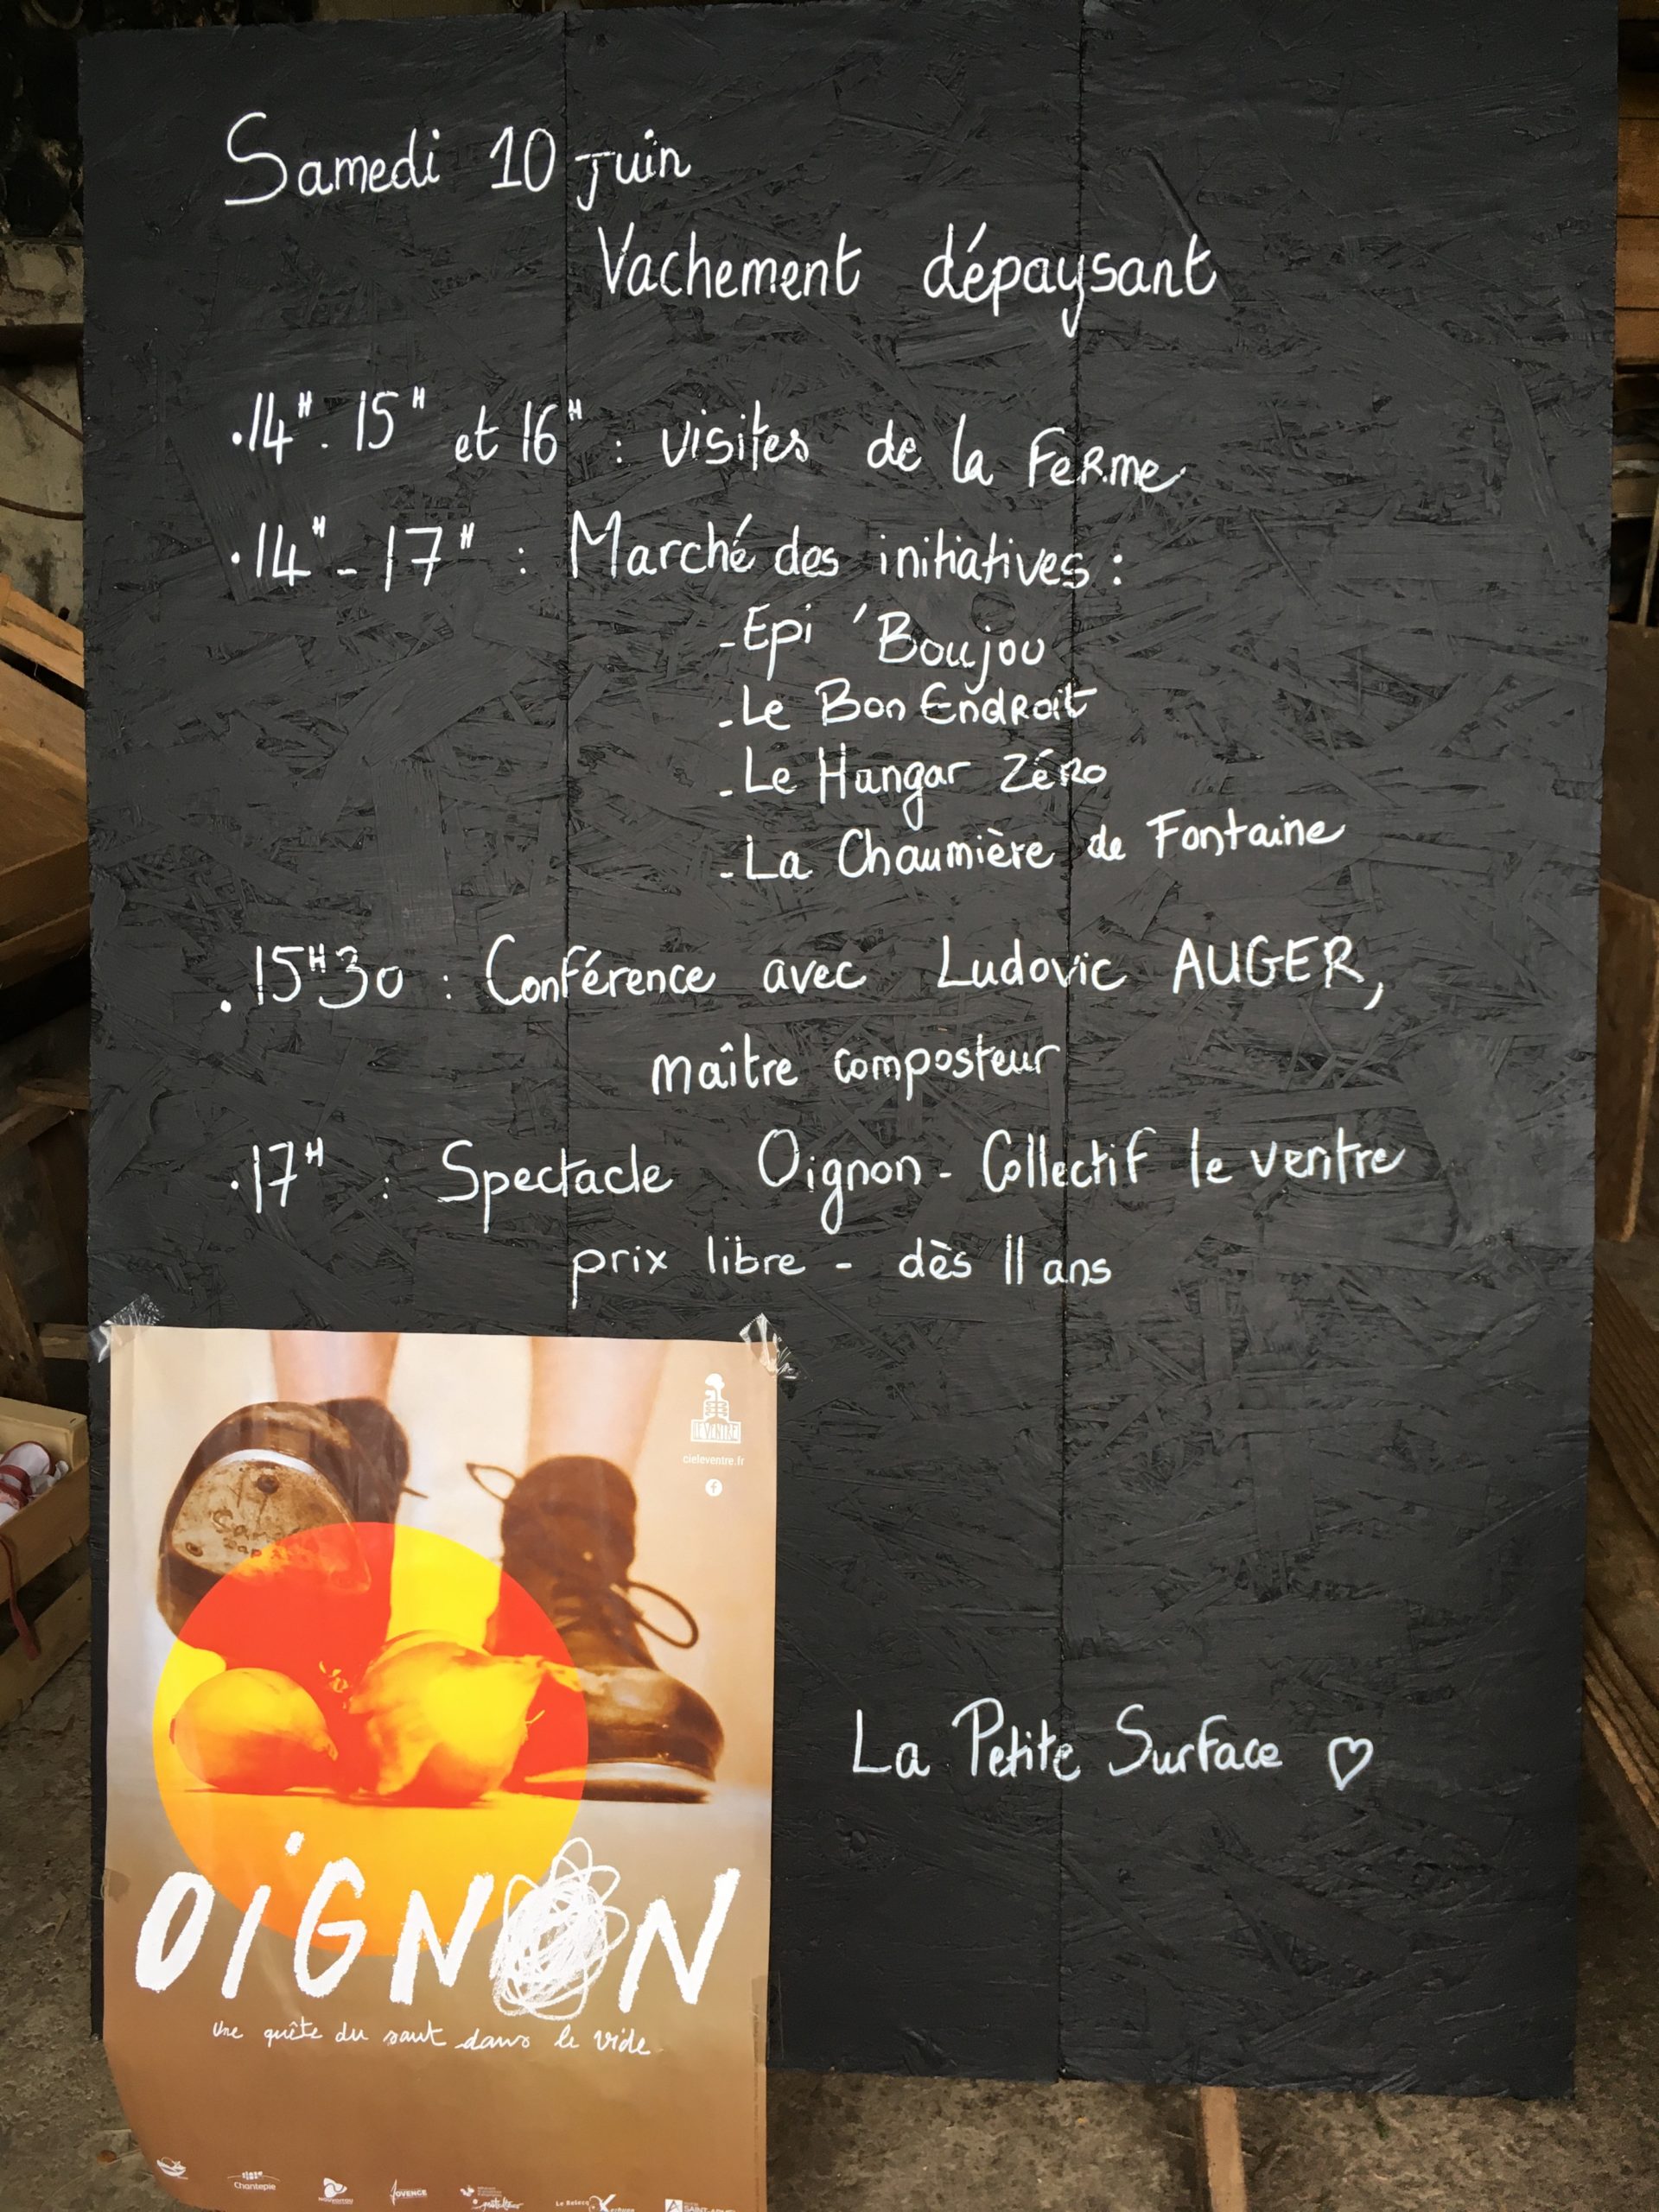 Samedi 10 Juin
Vachement dépaysant
. 14H. 15H et 16H : visites de la Ferme
. 14H - 17H : Marché des initiatives :
- Epi 'Boujou
- Le Bon Endroit
- Le Hangar Zéro
- La Chaumière de Fontaine
. 15H30 : Conférence avec Ludovic AUGER,
maître composteur
. 17H : Spectacle Oignon - Collectif le ventre
prix libre - dès 11 ans
LE VENTRE
cieleventre.fr
f
La Petite Surface ♡
OiGNON
Une quête du saut dans le vide
Chantepie
JOVENCE